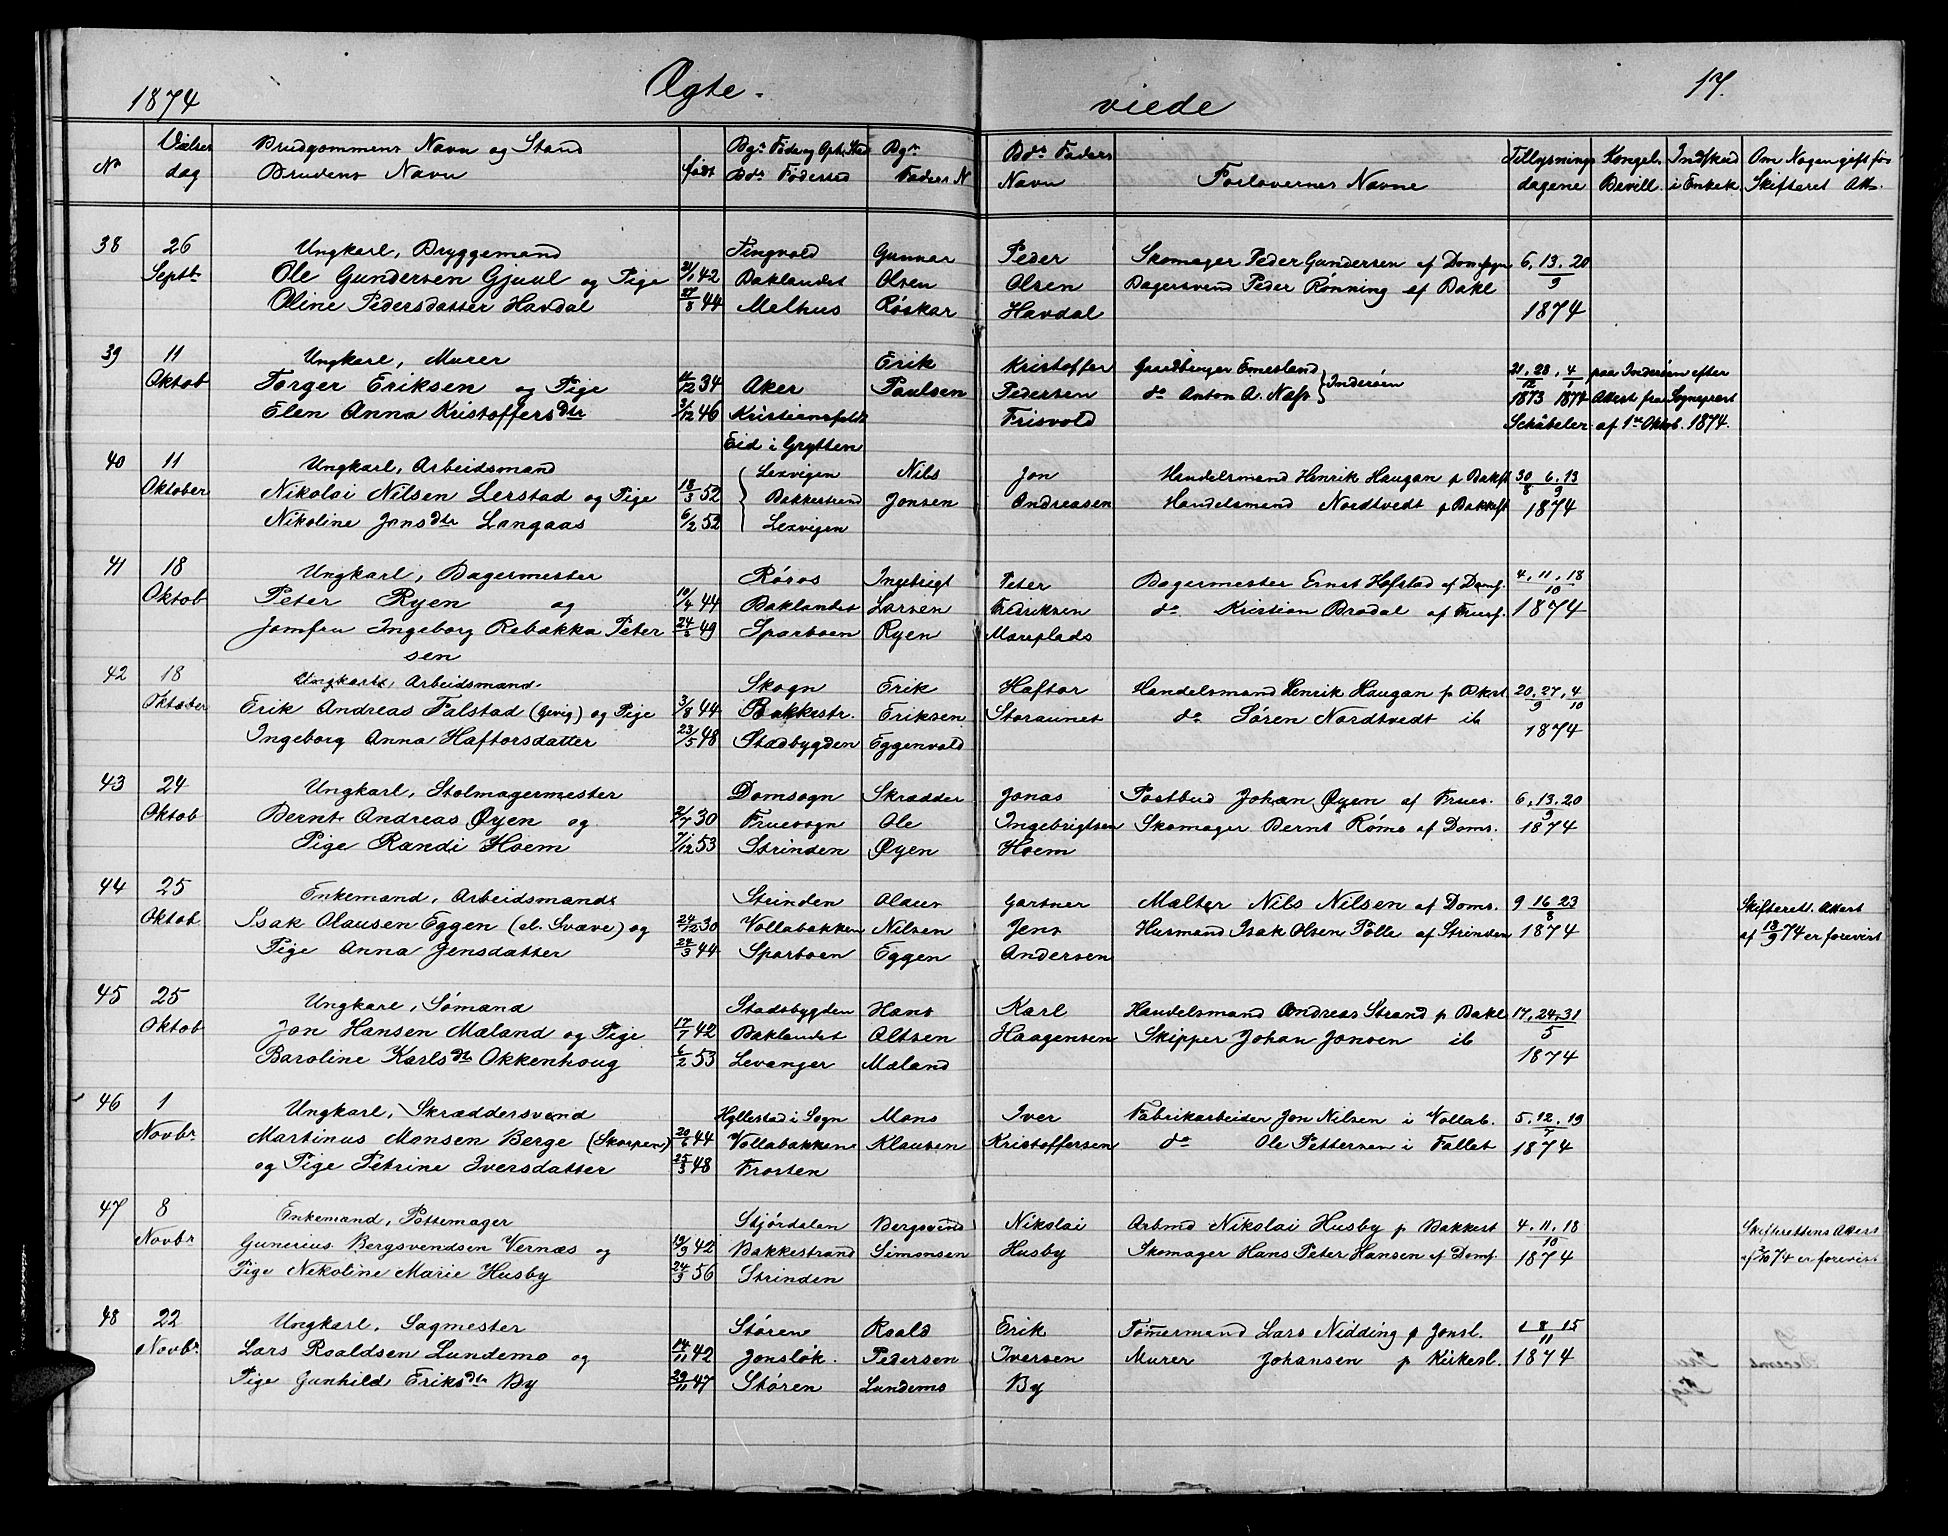 1874 Ægte- viede 17.
No Vielses dag Brudgommens Navn og Stand Brudens Navn født Bgs Føde og Oph. Sted Bds Fødested Bgs Faders N. Bds Faders Navn Forlovernes Navne Tillysnings dagene Kongel. Bevill. i Enkek. Om Nogen gift før Skifteret Att.
38 26 Ungkarl, Bryggemand Tingvold Gunnar Peder Skomager Peder Gundersen af Domsogn 6, 13, 20
Septbr Ole Gundersen Gjuul og Pige 42 Baklandet Olsen Olsen Bagersvend Peder Rønning af Bakl 9
Oline Pedersdatter Havdal 44 Melhus Røskar Havdal 1874
39 11 Ungkarl, Murer Erik Kristoffer Gaardbruger 21, 28, 4 paa Inderøen efter
Oktob Torger Eriksen og Pige 11/12 34 Aker Paulsen Pedersen do Anton A. Næss Inderøen 12 1 1873 1874 Attest fra Sognepræst
Elen Anna Kristoffersdtr 3/12 46 Kristiansfeldt Frisvold Schåbeler af 1ste Oktob. 1874.
Eid i Grytten
40 11 Ungkarl, Arbeidsmand Lexvigen Nils Jon Handelsmand Henrik Haugan p Bakst 30 6, 13
Oktober Nikolai Nilsen Lerstad og Pige 18/3 52 Bakkestrand Jonsen Andreasen Handelsmand Nordtvedt p Bakkst 8 9 1874
Nikoline Jonsdtr Langaas 6/2 52 Lexvigen
41 18 Ungkarl, Bagermester Røros Ingebrigt Peter Bagermester Ernst Hofstad af Doms. 4, 11, 18
Oktob Peter Ryen og 10/4 44 Baklandet Larsen Fredriksen do Kristian Brodal af Frues. 10 1874
Jomfru Ingeborg Rebakka Peter 49 Sparboen Ryen Mareplads
sen
42 18 Ungkarl, Arbeidsmand Skogn Erik Haftor Handelsmand Henrik Haugan p Bkst 20, 27, 4
Oktober Erik Andreas Falstad (Gevig) og Pige 3/8 44 Bakkestr. Eriksen Storaunet do Søren Nordtvedt ib 9 10
Ingeborg Anna Haftorsdatter 23/5 48 Stadbygden Eggenvold 1874
43 24 Ungkarl, Stolmagermester Domsogn Skrædder Jonas Postbud Johan Øyen af Frues. 6, 13, 20
Oktob Bernt Andreas Øyen og 2/7 30 Fruesogn Ole Ingebrigtsen Skomager Bernt Rømo af Doms. 9 1874
Pige Randi Hoem 7/12 53 Strinden Øyen Hoem
44 25 Enkemand, Arbeidsmand Strinden Olaus Gartner Malter Nils Nilsen af Doms. 9 16 23 Skifterett. Attest
Oktob Isak Olausen Eggen (el. Svæve) og 24/12 30 Vollabakken Nilsen Jens Husmand Isak Olsen Tolle af Strinden 8 1874 af 13/9 74 er forevist
Pige Anna Jensdatter 22/3 44 Sparboen Eggen Andersen
45 25 Ungkarl, Sømand Stadsbygden Hans Karl Handelsmand Andreas Strand p Bakl 17, 24, 31
Oktob Jon Hansen Mæland og Pige 17/7 42 Baklandet Altsen Haagensen Skipper Johan Jonsen ib 5
Baroline Karlsdtr Okkenhoug 6/2 53 Levanger Mæland 1874
46 1 Ungkarl, Skræddersvend Hyllestad i Sogn Mons Iver Fabrikarbeider Jon Nilsen i Vollab. 5, 12, 19
Novbr Martinus Monsen Berge (Skorpen) 20/6 44 Vollabakken Klausen Kristoffersen do Ole Pettersen i Fallet 7 1874
og Pige Petrine Iversdatter 25/3 48 Frosten
47 8 Enkemand, Pottemager Stjørdalen Bergsvend Nikolai Arbmd Nikolai Husby p Bakkest 4, 11, 18 Skifterettens Attest
Novbr Gunerius Bergsvendsen Vernæs og 19/9 42 Bakkestrand Simonsen Husby Skomager Hans Peter Hansen af Doms. 10 1874 af 74 er forevist
Pige Nikoline Marie Husby 24/3 56 Strinden
48 22 Ungkarl, Sagmester Støren Roald Erik Tømermand Lars Nidding p Jonsl. 1 8 15
Novbr. Lars Roaldsen Lundemo og 14/11 42 Jonsløk. Pedersen Iversen Murer Johansen p Kirkesl. 11 1874
Pige Gunhild Eriksdtr By 29/11 47 Støren Lundemo By